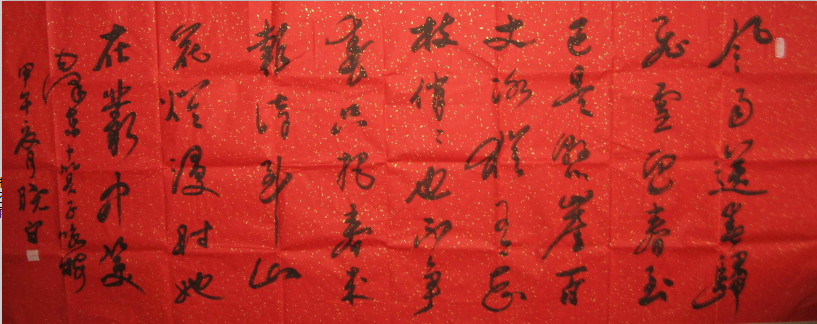 风雨送春歸
飞雪迎春到
已是悬崖百
丈冰猶有花
枝俏〻也不争
春只把春来
報待到山
花烂漫时她
在叢中笑
毛泽东卜算子咏梅
甲午